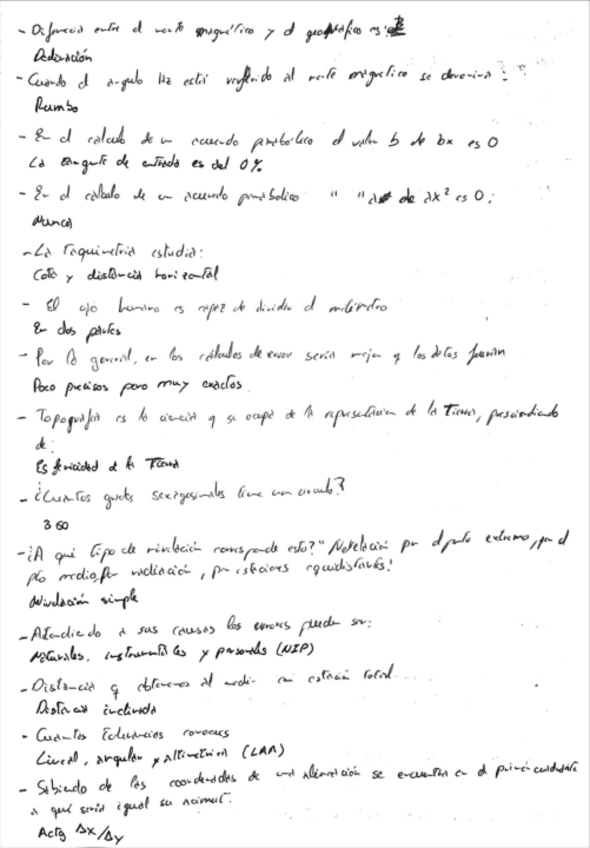 - Diferencia entre el norte magnético y el geográfico es:
Declinación
- Cuando el angulo Hz está referido al norte magnetico se denomina:
Rumbo
- En el calculo de un acuerdo parabolico el valor b de bx es 0
La tangente de entrada es del 0%
- En el calculo de un acuerdo parabolico " " a de ax² es 0:
Nunca
- La Taquimetria estudia:
Cota y distancia horizontal
- El ojo humano es capaz de dividir el milimetro
En dos partes
- Por lo general, en los cálculos de error sería mejor q los datos fueran
Poco precisos pero muy exactos.
- Topografía es la ciencia q se ocupa de la representacion de la Tierra, prescindiendo
de:
Esfericidad de la Tierra
- ¿Cuantos grados sexagesimales tiene un circulo?
360
- ¿A qué tipo de nivelación corresponde esto? "Nivelación por el punto extremo, por el
pto medio, por radiación, por estaciones equidistantes!
Nivelación simple
- Atendiendo a sus causas los errores pueden ser:
Naturales, instrumentales y personales (NIP)
- Distancia q obtenemos al medir con estación total
Distancia inclinada
- Cuantas tolerancias conoces
Lineal, angular y altimetrica (LAA)
- Sabiendo de las coordenadas de una alineación se encuentra en el primer cuadrante
a qué sería igual su acimut.
Actg Δx/Δy